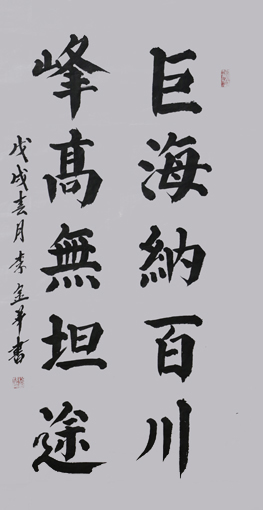 巨海納百川
峰高無坦途
戊戌春月李金華書